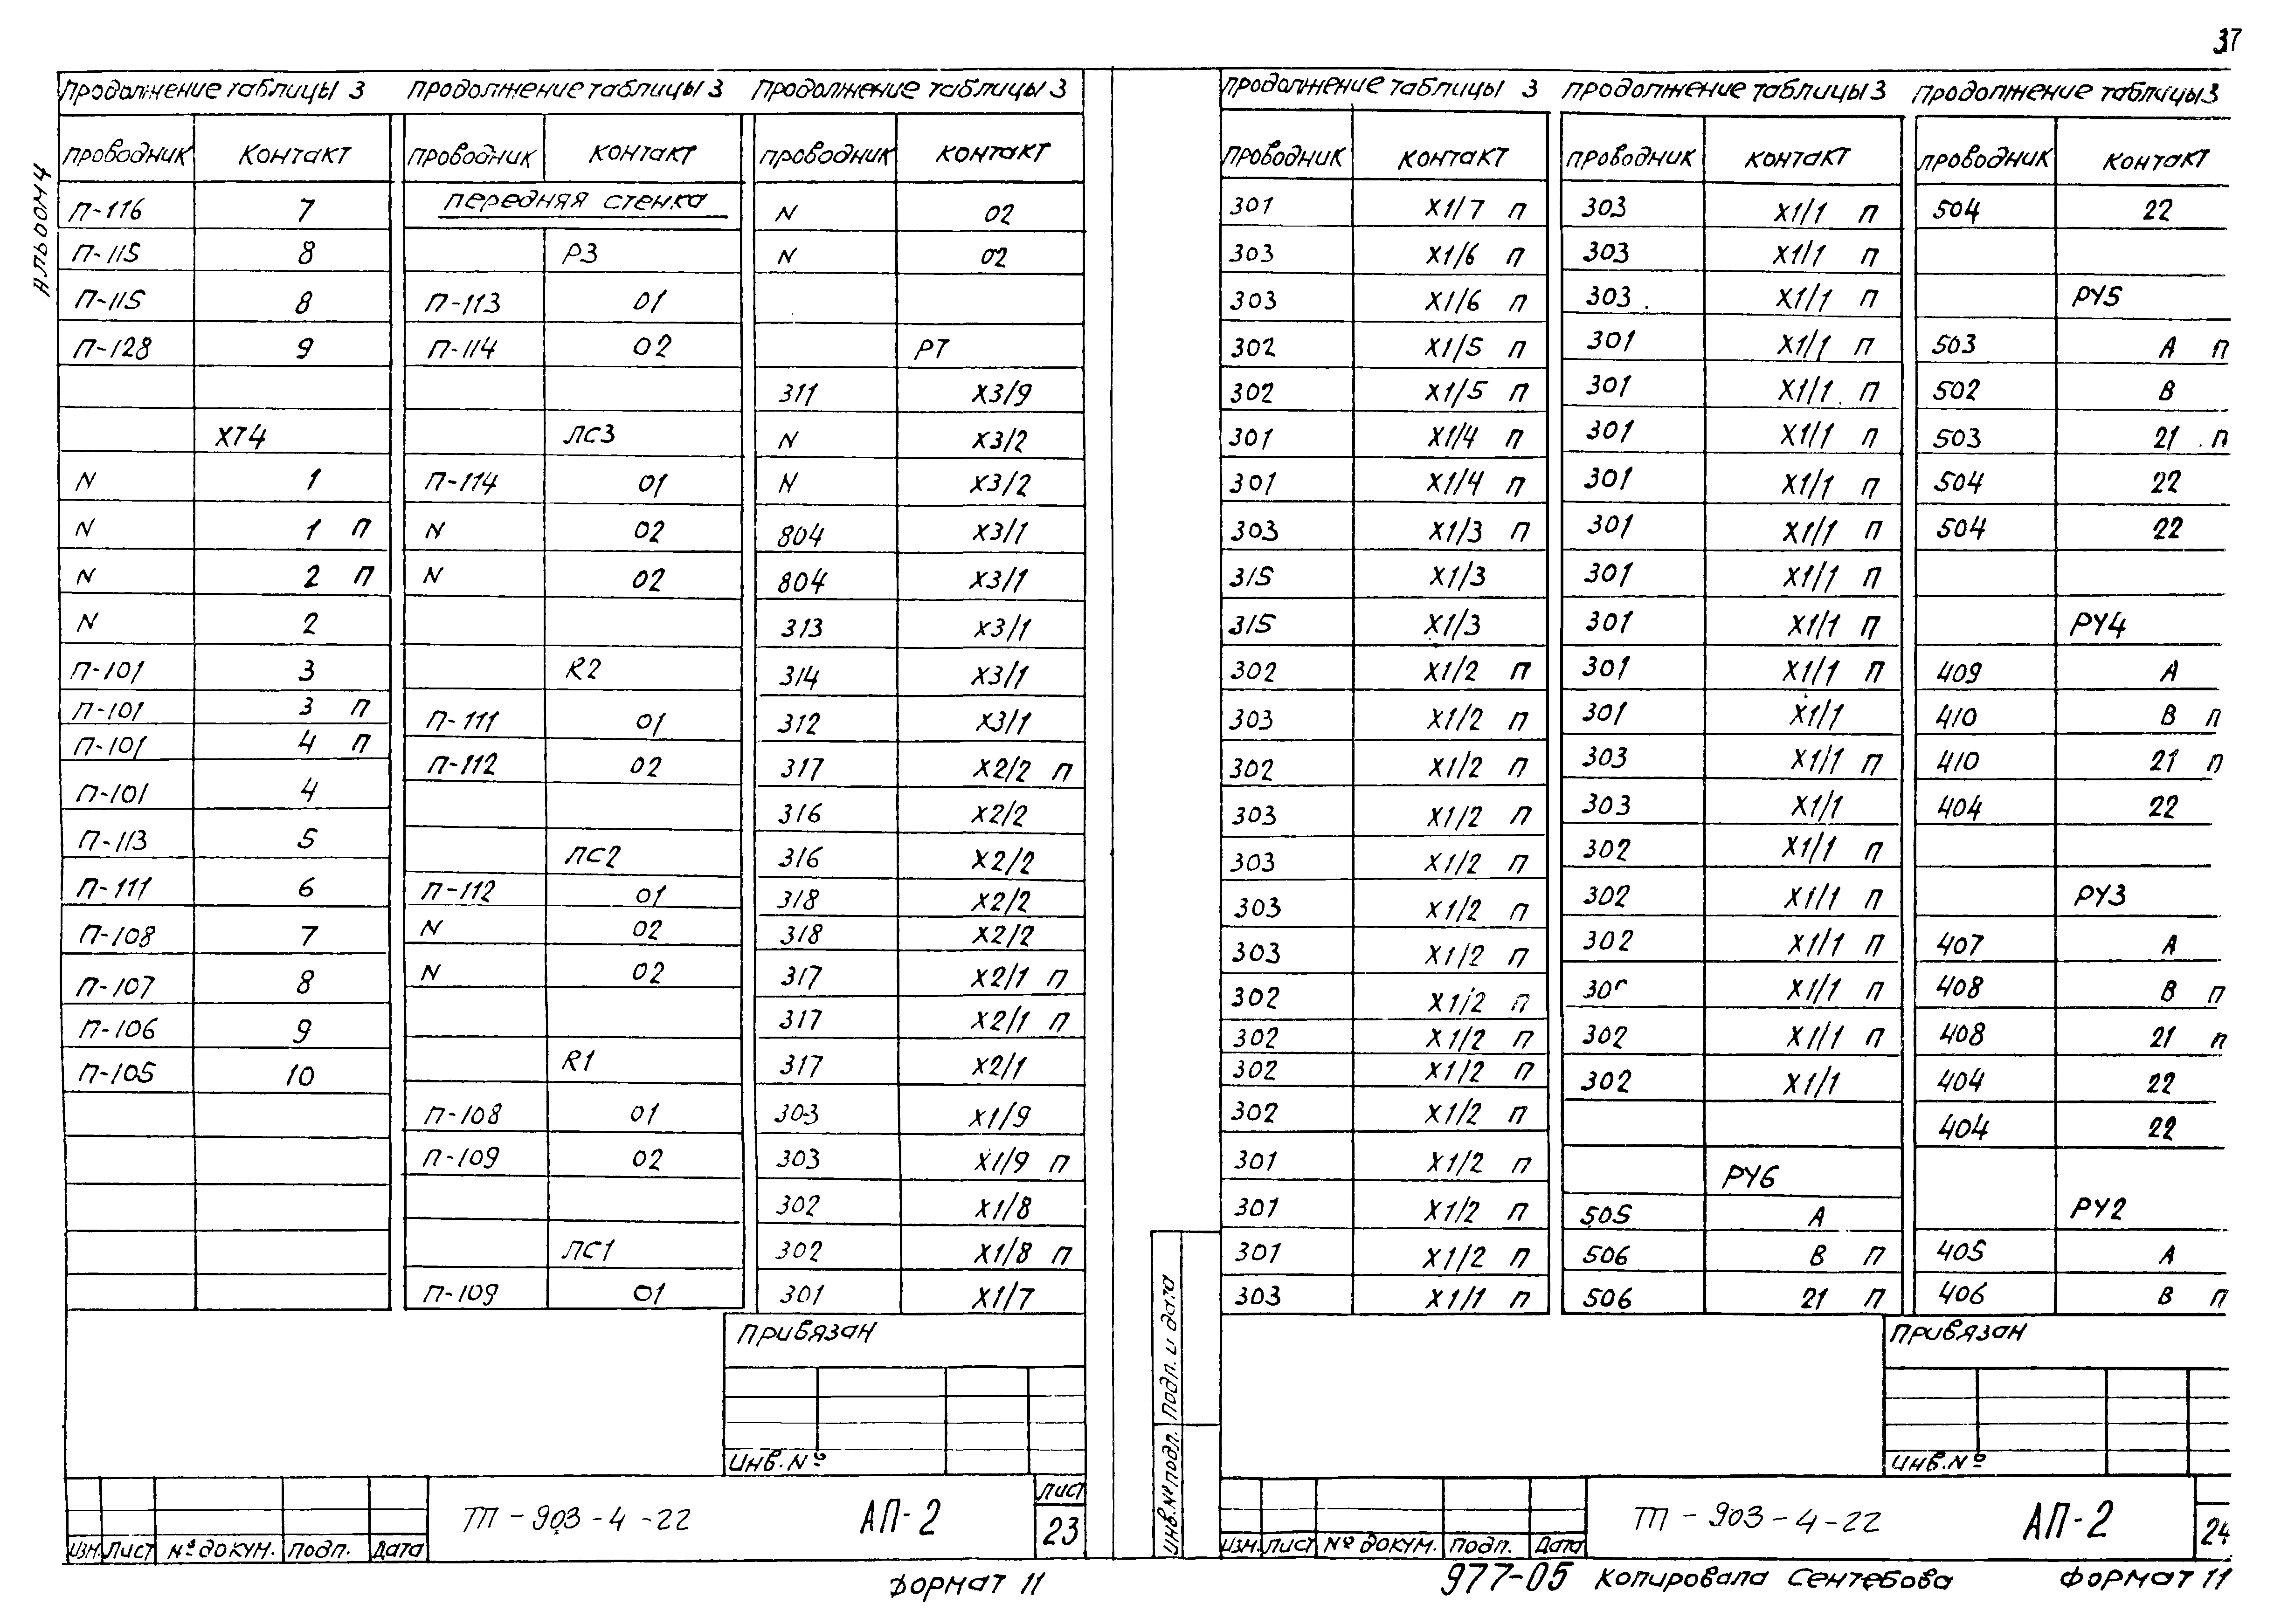 37
Альбом 4
Продолжение таблицы 3
Проводник Контакт
П-116 7
П-115 8
П-115 8
П-128 9
ХТ4
N 1
N 1 П
N 2 П
N 2
П-101 3
П-101 3 П
П-101 4 П
П-101 4
П-113 5
П-111 6
П-108 7
П-107 8
П-106 9
П-105 10
Продолжение таблицы 3
Проводник Контакт
Передняя стенка
Р3
П-113 01
П-114 02
ЛС3
П-114 01
N 02
N 02
R2
П-111 01
П-112 02
ЛС2
П-112 01
N 02
N 02
R1
П-108 01
П-109 02
ЛС1
П-109 01
Продолжение таблицы 3
Проводник Контакт
N 02
N 02
РТ
311 Х3/9
N Х3/2
N Х3/2
804 Х3/1
804 Х3/1
313 Х3/1
314 Х3/1
312 Х3/1
317 Х2/2 П
316 Х2/2
316 Х2/2
318 Х2/2
318 Х2/2
317 Х2/1 П
317 Х2/1 П
317 Х2/1
303 Х1/9
303 Х1/9 П
302 Х1/8
302 Х1/8 П
301 Х1/7
Привязан
Инв.№
Изм. Лист № докум. Подп. Дата
ТП-903-4-22 АП-2
Лист
23
Формат 11
Продолжение таблицы 3
Проводник Контакт
301 Х1/7 П
303 Х1/6 П
303 Х1/6 П
302 Х1/5 П
302 Х1/5 П
301 Х1/4 П
301 Х1/4 П
303 Х1/3 П
315 Х1/3
315 Х1/3
302 Х1/2 П
303 Х1/2 П
302 Х1/2 П
303 Х1/2 П
303 Х1/2 П
303 Х1/2 П
303 Х1/2 П
302 Х1/2 П
302 Х1/2 П
302 Х1/2 П
302 Х1/2 П
301 Х1/2 П
301 Х1/2 П
301 Х1/2 П
303 Х1/1 П
Продолжение таблицы 3
Проводник Контакт
303 Х1/1 П
303 Х1/1 П
303 Х1/1 П
301 Х1/1 П
301 Х1/1 П
301 Х1/1 П
301 Х1/1 П
301 Х1/1 П
301 Х1/1 П
301 Х1/1 П
301 Х1/1 П
301 Х1/1
303 Х1/1 П
303 Х1/1
302 Х1/1 П
302 Х1/1 П
302 Х1/1 П
Х1/1 П
302 Х1/1 П
302 Х1/1
РУ6
505 А
506 В П
506 21 П
Продолжение таблицы 3
Проводник Контакт
504 22
РУ5
503 А П
502 В
503 21 П
504 22
504 22
РУ4
409 А
410 В П
410 21 П
404 22
РУ3
407 А
408 В П
408 21 П
404 22
404 22
РУ2
405 А
406 В П
Инв.№ подл. Подп. и дата
Привязан
Инв.№
Изм. Лист № докум. Подп. Дата
ТП-903-4-22 АП-2
24
977-05 Копировала Сентебова Формат 11